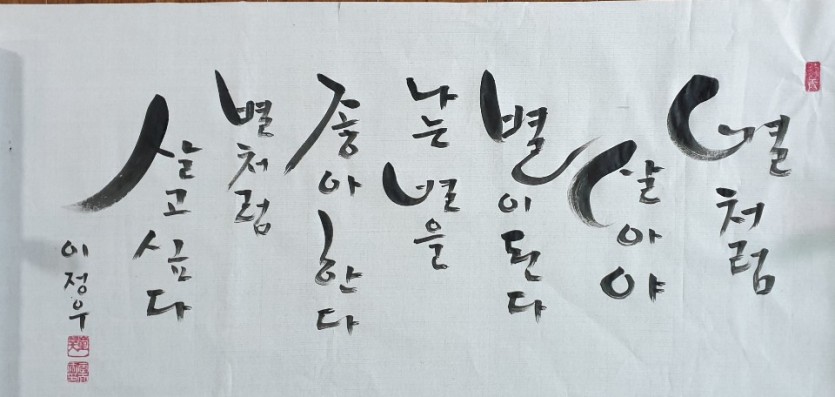 별처럼
살아야
별이된다
나는별을
좋아한다
별처럼
살고싶다
이정우